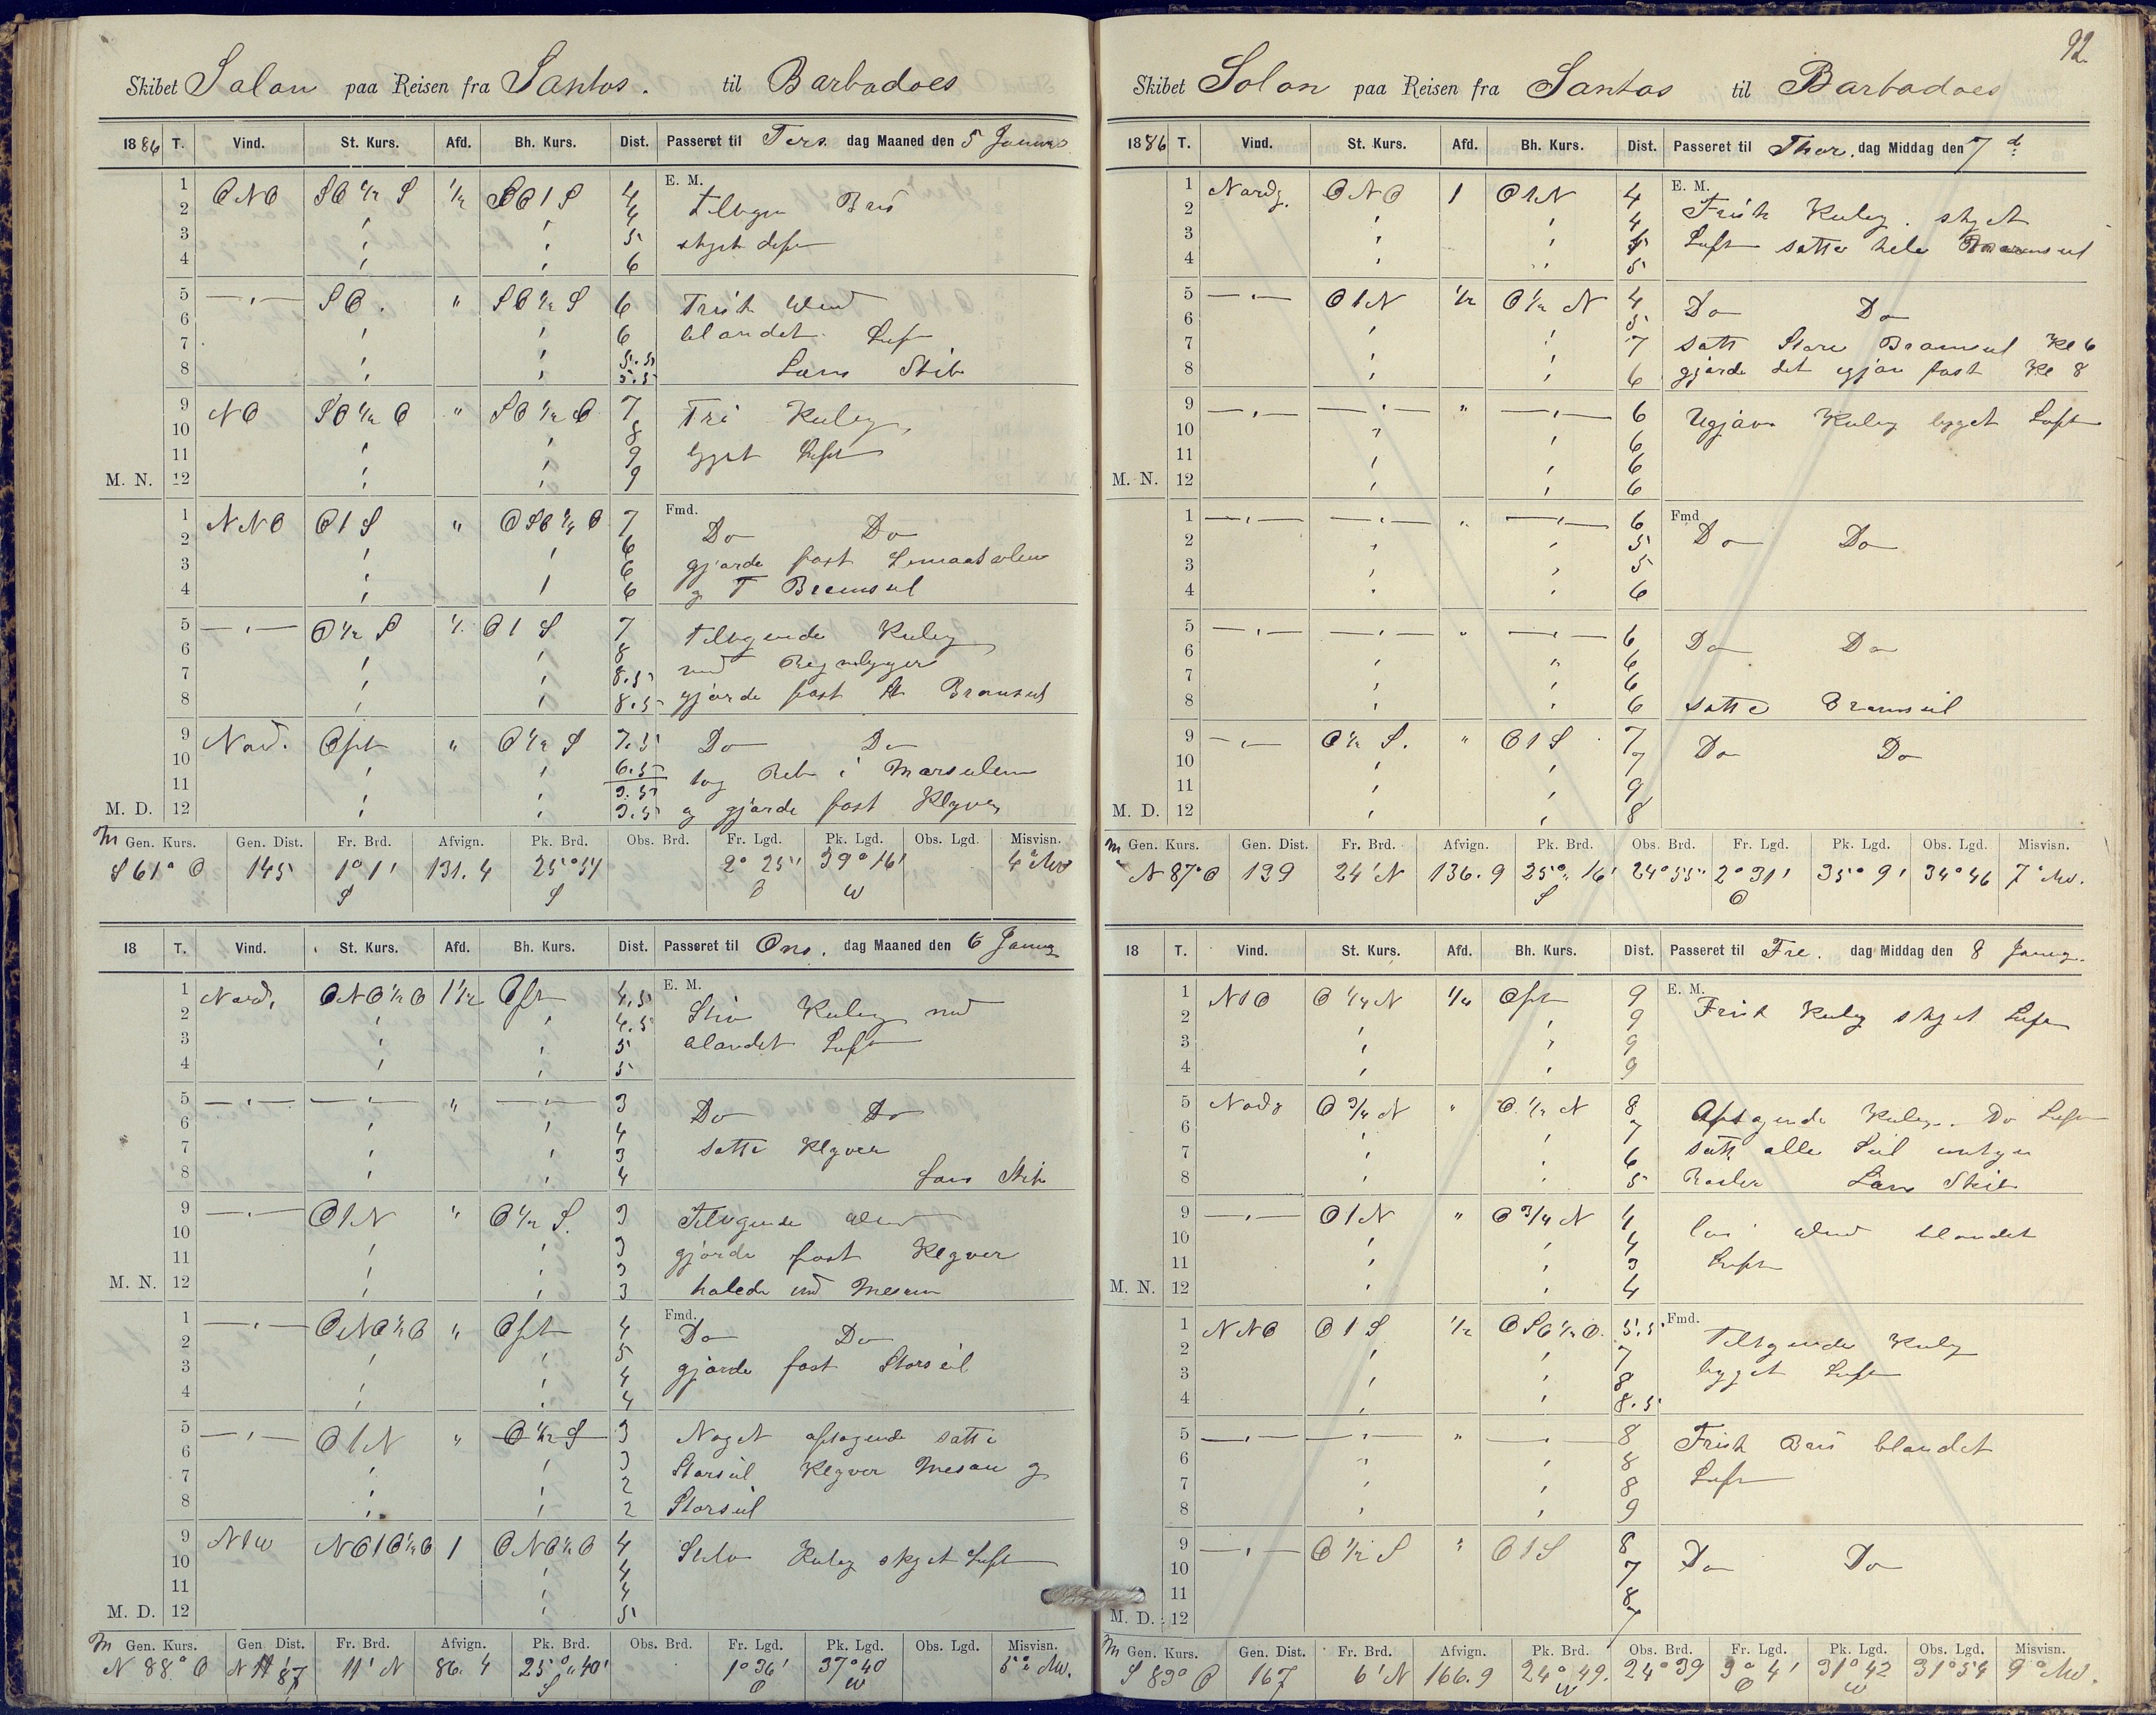 Skibet Solon paa Reisen fra Santos. til Barbadoes
1886 T. Vind. St. Kurs. Afd. Bh. Kurs. Dist. Passeret til Tirs dag Maaned den 5 Januar
E. M.
1 ONO SO 1/2 S 1/2 SO 1 S 4
2 4 Bris
3 5 skyet
4 6
5 SO. " SO 1/2 S 6 Frisk Vind
6 6 blandet Luft
7 5.5 Læns Skib
8 5.5
9 NO SO 1/2 O " SO 1/2 O 7 Kuling
10 8
11 9 bygget Luft
M. N. 12 9
Fmd.
1 NNO O 1 S " OSO 1/4 O 7 Do Do
2 6
3 6 gjorde fast
4 6 og F Bramseil
5 O 1/2 S O 1 S 7 Tiltagende Kuling
6 8 med Regnbygger
7 8.5
8 8.5 gjorde fast St Bramseil
9 Nord. Ost " O 1/2 S 7.5 Do Do
10 6.5 tog Reb i Marseilene
11 3.5
M. D. 12 3.5 og gjorde fast Klyver
M Gen. Kurs. Gen. Dist. Fr. Brd. Afvign. Pk. Brd. Obs. Brd. Fr. Lgd. Pk. Lgd. Obs. Lgd. Misvisn.
S 61° O 145 1° 1' 131.4 25° 54 2° 25' 39° 16' 4° NW
S S O W
18 T. Vind. St. Kurs. Afd. Bh. Kurs. Dist. Passeret til Ons. dag Maaned den 6 Januar
E. M.
1 Nord. ONO 1/2 O 1 1/2 Ost 4.5 Stiv Kuling med
2 4.5
3 5 blandet Luft
4 5
5 " 3 Do Do
6 4
7 3 satte Klyver
8 4 Læns Skib
9 O 1 N " O 1/2 S. 3 Tiltagende Vind
10 3 gjorde fast Klyver
11 3
M. N. 12 3 halede ind Mesan
Fmd.
1 ONO 1/2 O " Ost 4 Do Do
2 5
3 4 gjorde fast Storseil
4 4
5 O 1 N " O 1/2 S 3 Noget aftagende satte
6 3 Storseil Klyver Mesan og
7 2
8 2 Storseil
9 N 1 W NO 1 O 1/2 O 1 ONO 1/2 O 4 Kuling skyet Luft
10 4
11 4
M. D. 12 5
M Gen. Kurs. Gen. Dist. Fr. Brd. Afvign. Pk. Brd. Obs. Brd. Fr. Lgd. Pk. Lgd. Obs. Lgd. Misvisn.
N 88° O 87 11' N 86.4 25° 40' 1° 36' 37° 40 5° NW.
S O W
92
Skibet Solon paa Reisen fra Santos til Barbadoes
1886 T. Vind. St. Kurs. Afd. Bh. Kurs. Dist. Passeret til Thor. dag Middag den 7 d:
E. M.
1 Nordl. ONO 1 O 1 N 4 Frisk Kuling. skyet
2 4
3 5 Luft satte hele
4 5
5 O 1 N 1/2 O 1/2 N 4 Do Do
6 5
7 7 satte Store Bramseil Kl 6
8 6 gjorde det igjen fast Kl 8
9 " 6 Ugjævn Kuling bygget Luft
10 6
11 6
M. N. 12 6
Fmd.
1 " 6 Do Do
2 5
3 5
4 6
5 " 6 Do Do
6 6
7 6
8 6 satte Bramseil
9 O 1/2 S. " O 1 S 7 Do Do
10 7
11 9
M. D. 12 8
M Gen. Kurs. Gen. Dist. Fr. Brd. Afvign. Pk. Brd. Obs. Brd. Fr. Lgd. Pk. Lgd. Obs. Lgd. Misvisn.
N 87° O 139 24' N 136.9 25° 16' 24° 55 2° 31' 35° 9' 34° 46 7° NW.
S O
18 T. Vind. St. Kurs. Afd. Bh. Kurs. Dist. Passeret til Fre. dag Middag den 8 Januar.
E. M.
1 N 1 O O 1/4 N 1/4 Ost 9 Frisk Kuling skyet Luft
2 9
3 9
4 9
5 Nord O 3/4 N " O 1/2 N 8 Aftagende Kuling. Do Luft
6 7
7 6 satte alle Seil
8 5 Læns Skib
9 O 1 N " O 3/4 N 4 Vind blandet
10 4
11 3 Luft
M. N. 12 4
Fmd.
1 NNO O 1 S 1/2 OSO 1/2 O. 5.5 Tiltagende Kuling
2 7
3 8 bygget Luft
4 8.5
5 " 8 Frisk Bris blandet
6 8
7 8 Luft
8 9
9 O 1/2 S " O 1 S 8 Do Do
10 7
11 8
M. D. 12 7
M Gen. Kurs. Gen. Dist. Fr. Brd. Afvign. Pk. Brd. Obs. Brd. Fr. Lgd. Pk. Lgd. Obs. Lgd. Misvisn.
S 83° O 167 6' N 166.9 24° 49. 24° 39 3° 4' 31° 42 31° 54 9° NW.
W O W